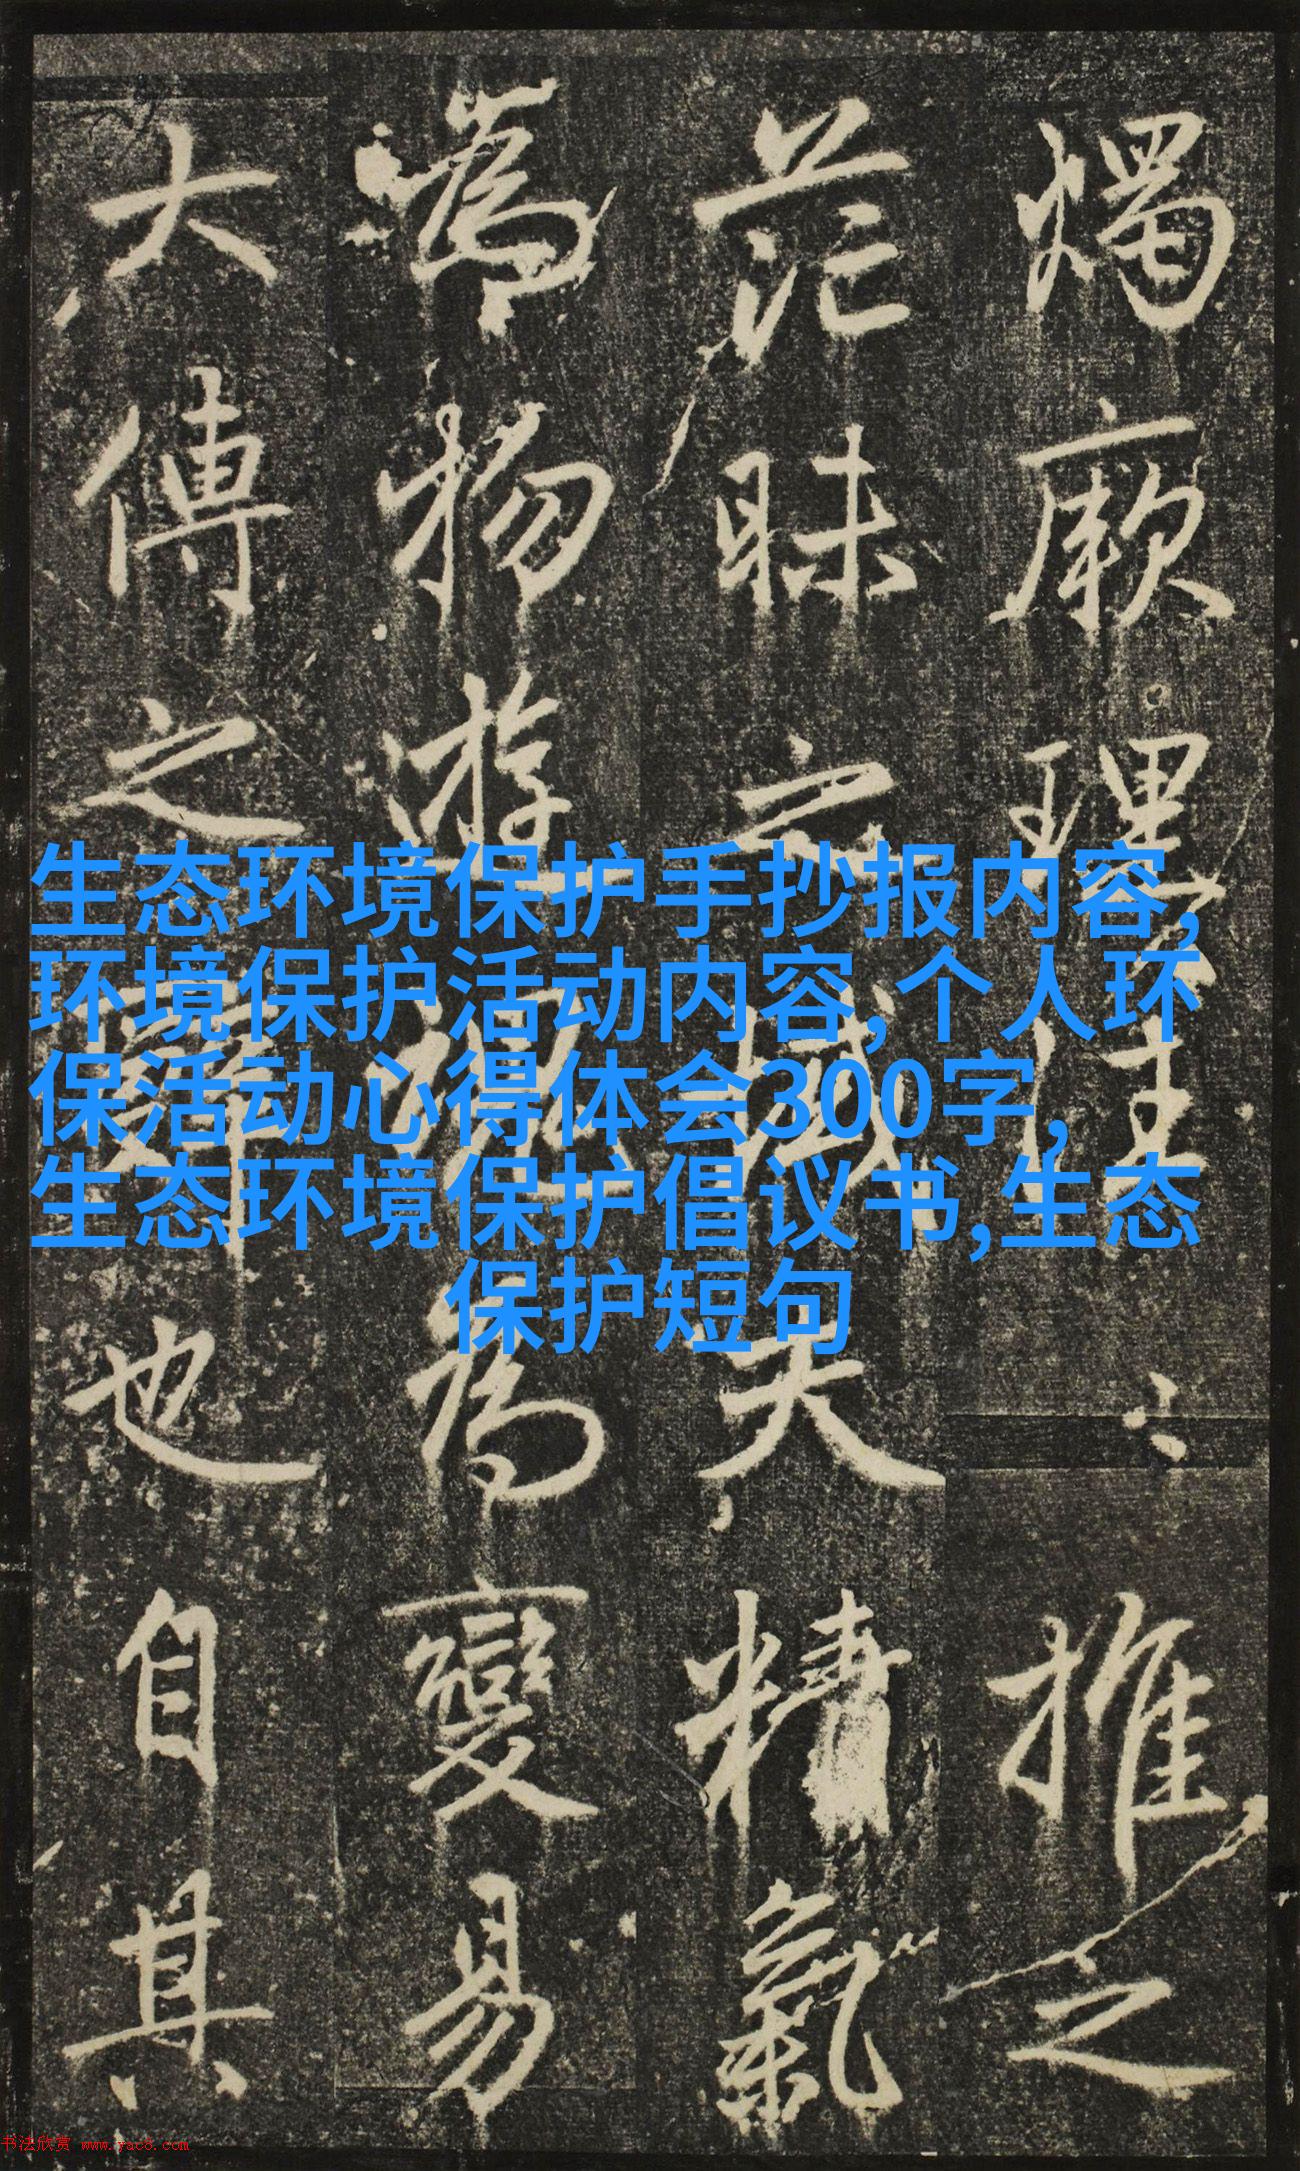 燭厥理其性
推之
茫昧
之域夫精氣
為物遊魂為變易
大傳之辭也自其
生态环境保护手抄报内容,
环境保护活动内容,个人环
保活动心得体会300字,
生态环境保护倡议书,生态
保护短句
书法欣赏 www.yac8.com